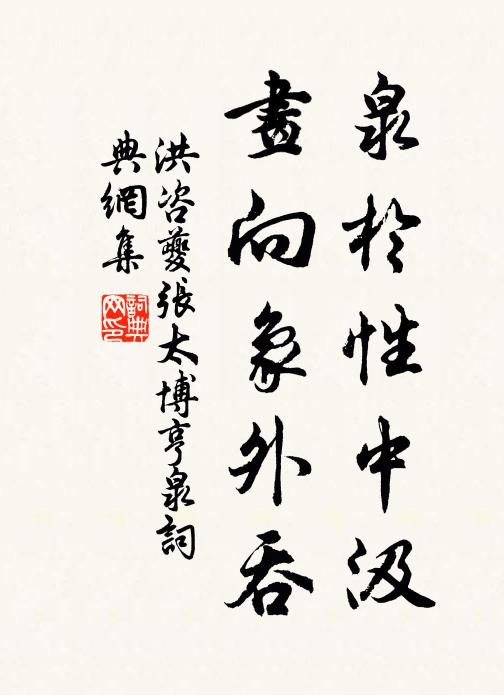 泉於性中汲
畫向象外吞
洪咨夔張太博亨泉詞
典網集
詞典網印